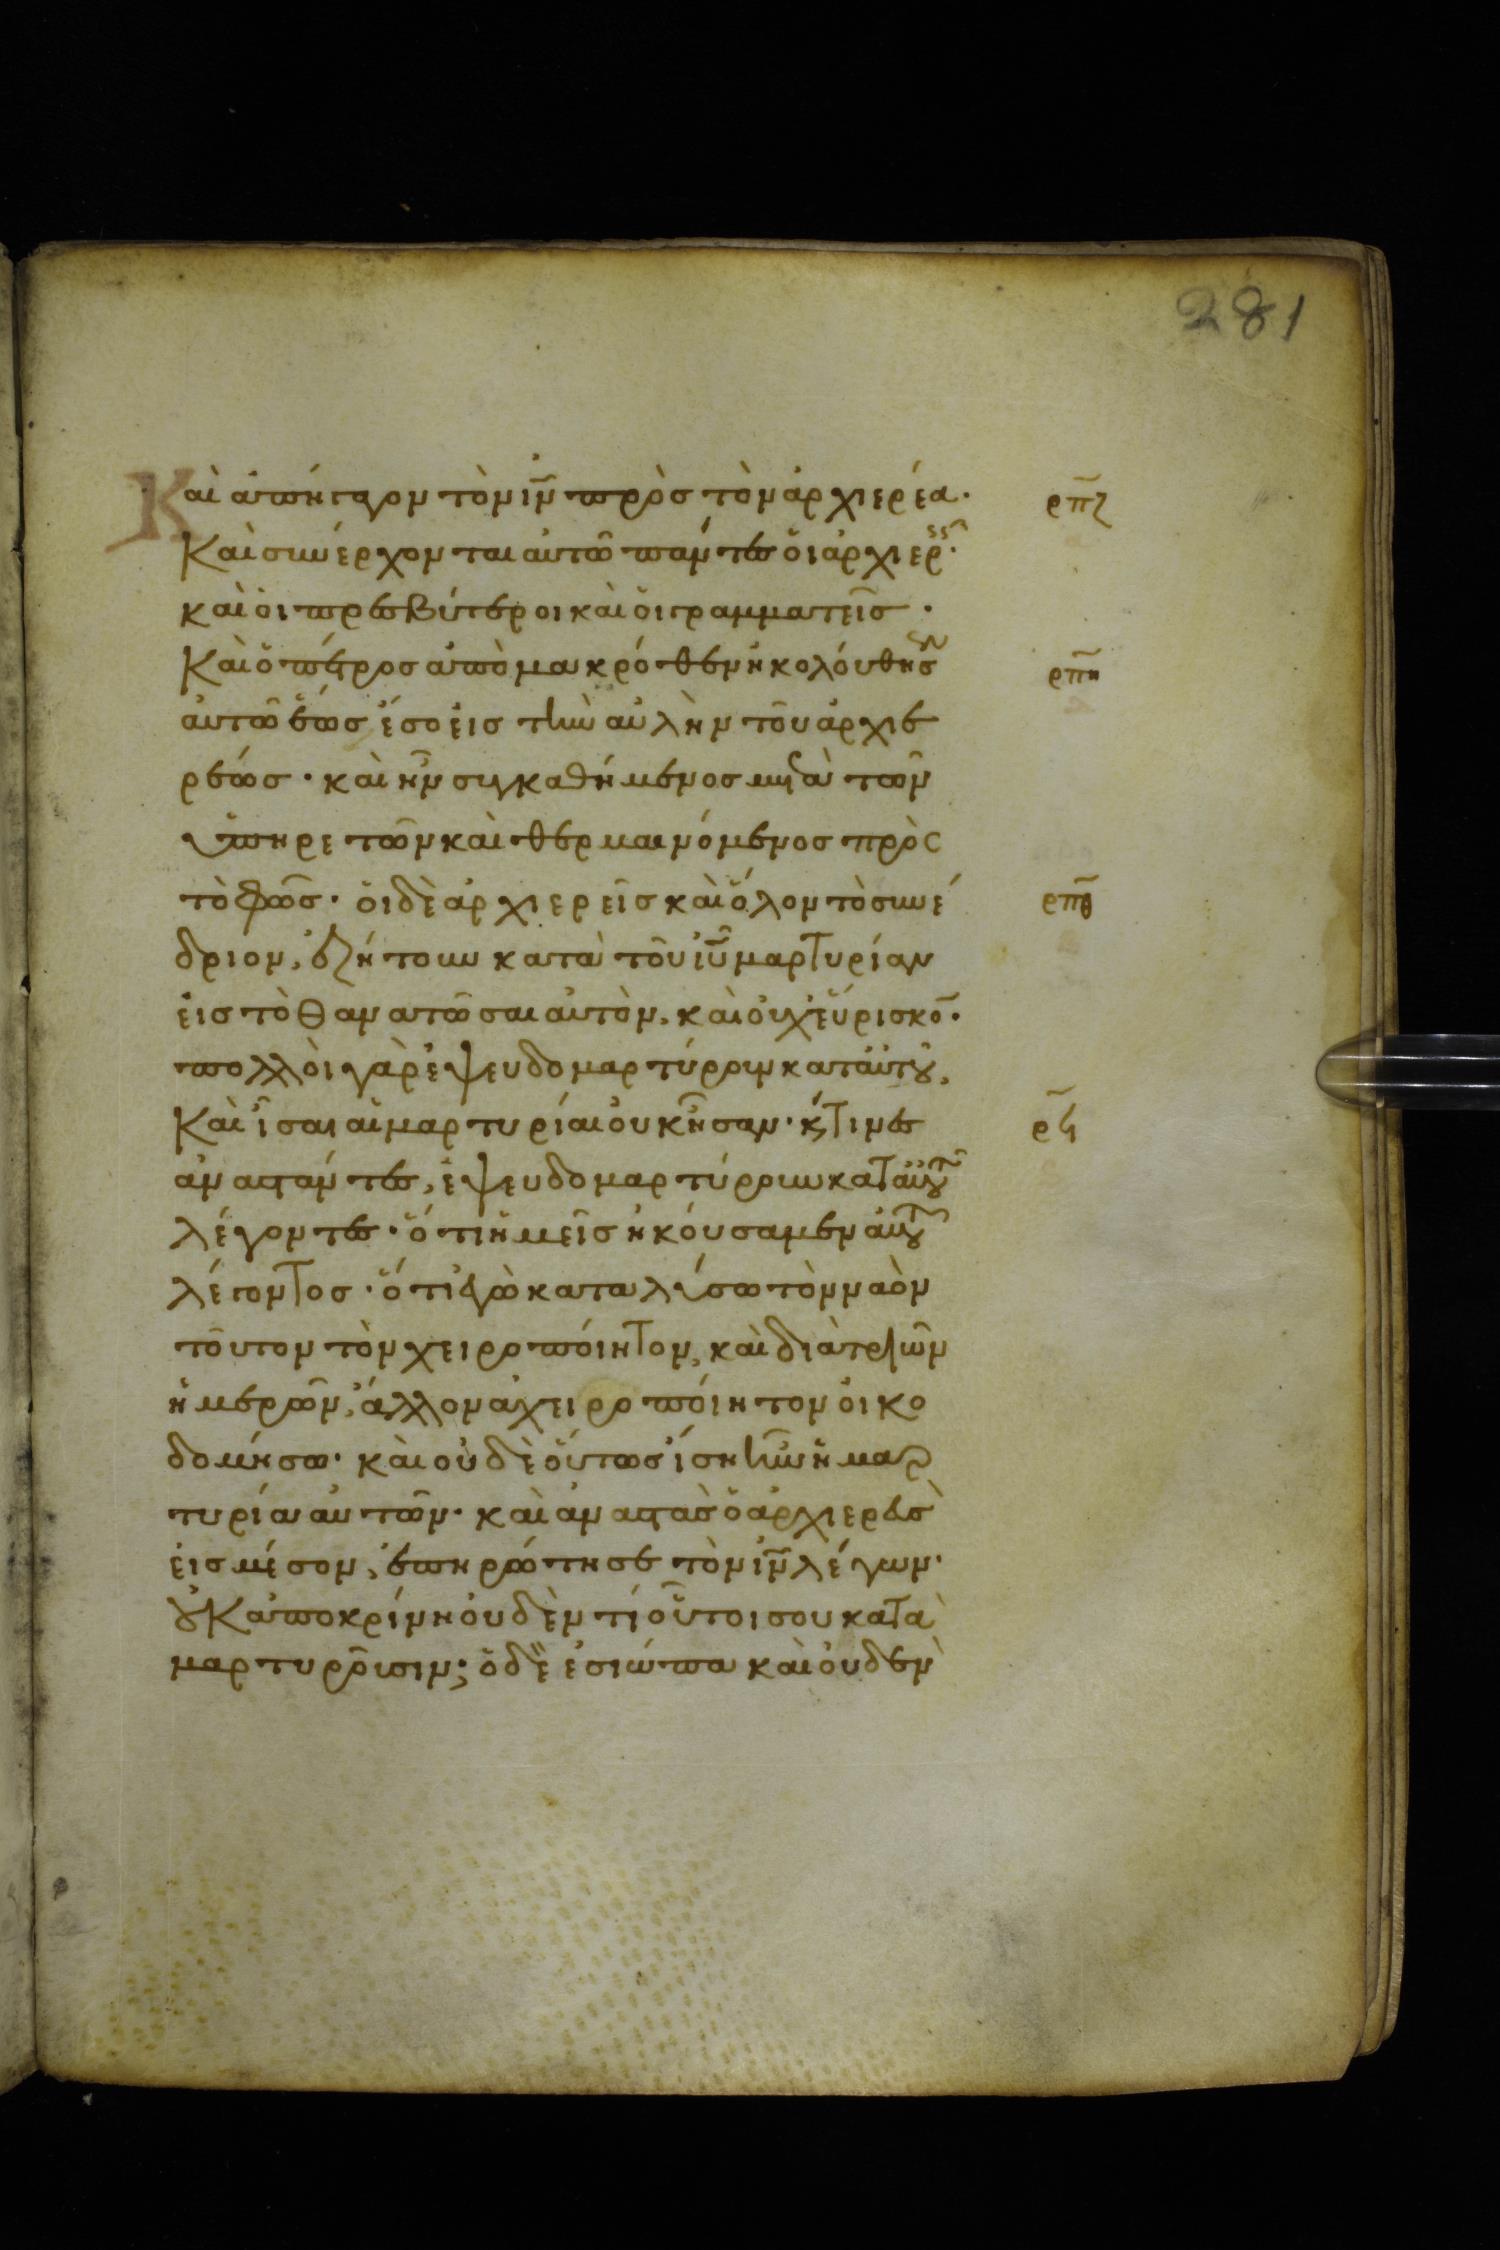 281
Καὶ ἀπήγαγον τὸν ιν̅ πρὸς τὸν ἀρχιερέα· ρπζ
Καὶ συνέρχονται αὐτῶ πάντες ὁι ἀρχιερεῖς·
καὶ ὁι πρεσβύτεροι καὶ ὁι γραμματεῖς ·
Καὶ ὁ πέτρος ἀπὸ μακρόθεν ἠκολόυθησεν ρπη
ἀυτῶ ἕως ἔσο ἐις τὴν αὐλὴν τοῦ ἀρχιε
ρέως · καὶ ἦν συγκαθήμενος μετὰ τῶν
ὑπηρετῶν καὶ θερμαινόμενος πρὸς
τὸ φῶς · ὁι δὲ ἀρχιερεῖς καὶ ὅλον τὸ συνέ ρπθ
δριον, ἐζήτουν κατὰ τοῦ ιυ̅ μαρτυρίαν
ἐις τὸ θανατῶσαι αὐτὸν, καὶ οὐχ ἕυρισκο̅·
πολλὸι γὰρ ἐψευδομαρτύρουν κατ ἀυτου,
Καὶ ἶσαι αἱ μαρτυρίαι ὀυκ ἦσαν · κ τινες ρϟ
ἀναστάντες, ἐψευδομαρτύρουν κατ ἀυτου
λέγοντες · ὅτι ἡμεῖς ἠκόυσαμεν ἀυτου
λέγοντος · ὅτι ἐγὼ καταλύσω τὸν ναὸν
τοῦτον τὸν χειροποίητον, καὶ διὰ τριῶν
ἡμερῶν, ἄλλον ἀχειροποίητον ὀικο
δομήσω · καὶ οὐδὲ ὅυτως ἴση ἦν ἡ μαρ
τυρία αὐτῶν · καὶ ἀναστὰς ὁ ἀρχιερεὺς
ἐις μέσον, ἐπηρώτησε τὸν ιν̅ λέγων·
ὀυκ ἀποκρίνη ὀυδὲν τί οὗτοι σου κατα
μαρτυροῦσιν; ὁ δὲ ἐσιώπα καὶ ὀυδὲν